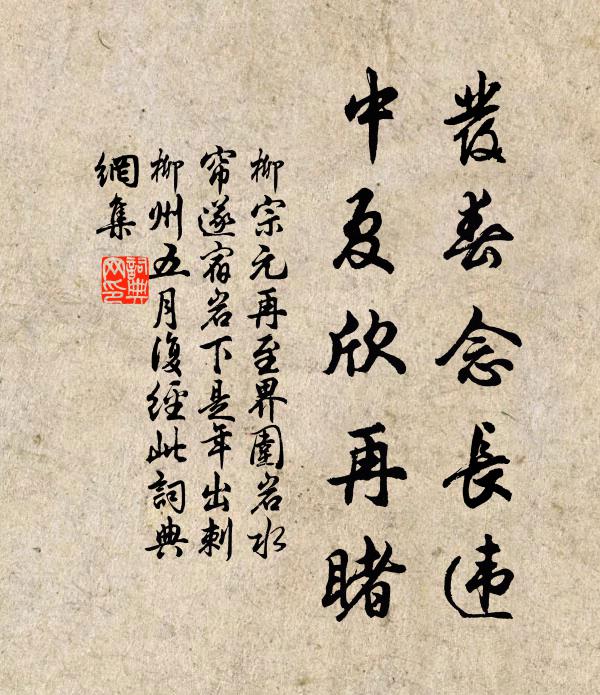 發春念長违
中夏欣再睹
柳宗元再至界圍岩水
帘遂宿岩下是年出刺
柳州五月復經此詞典
網集
詞典
网印